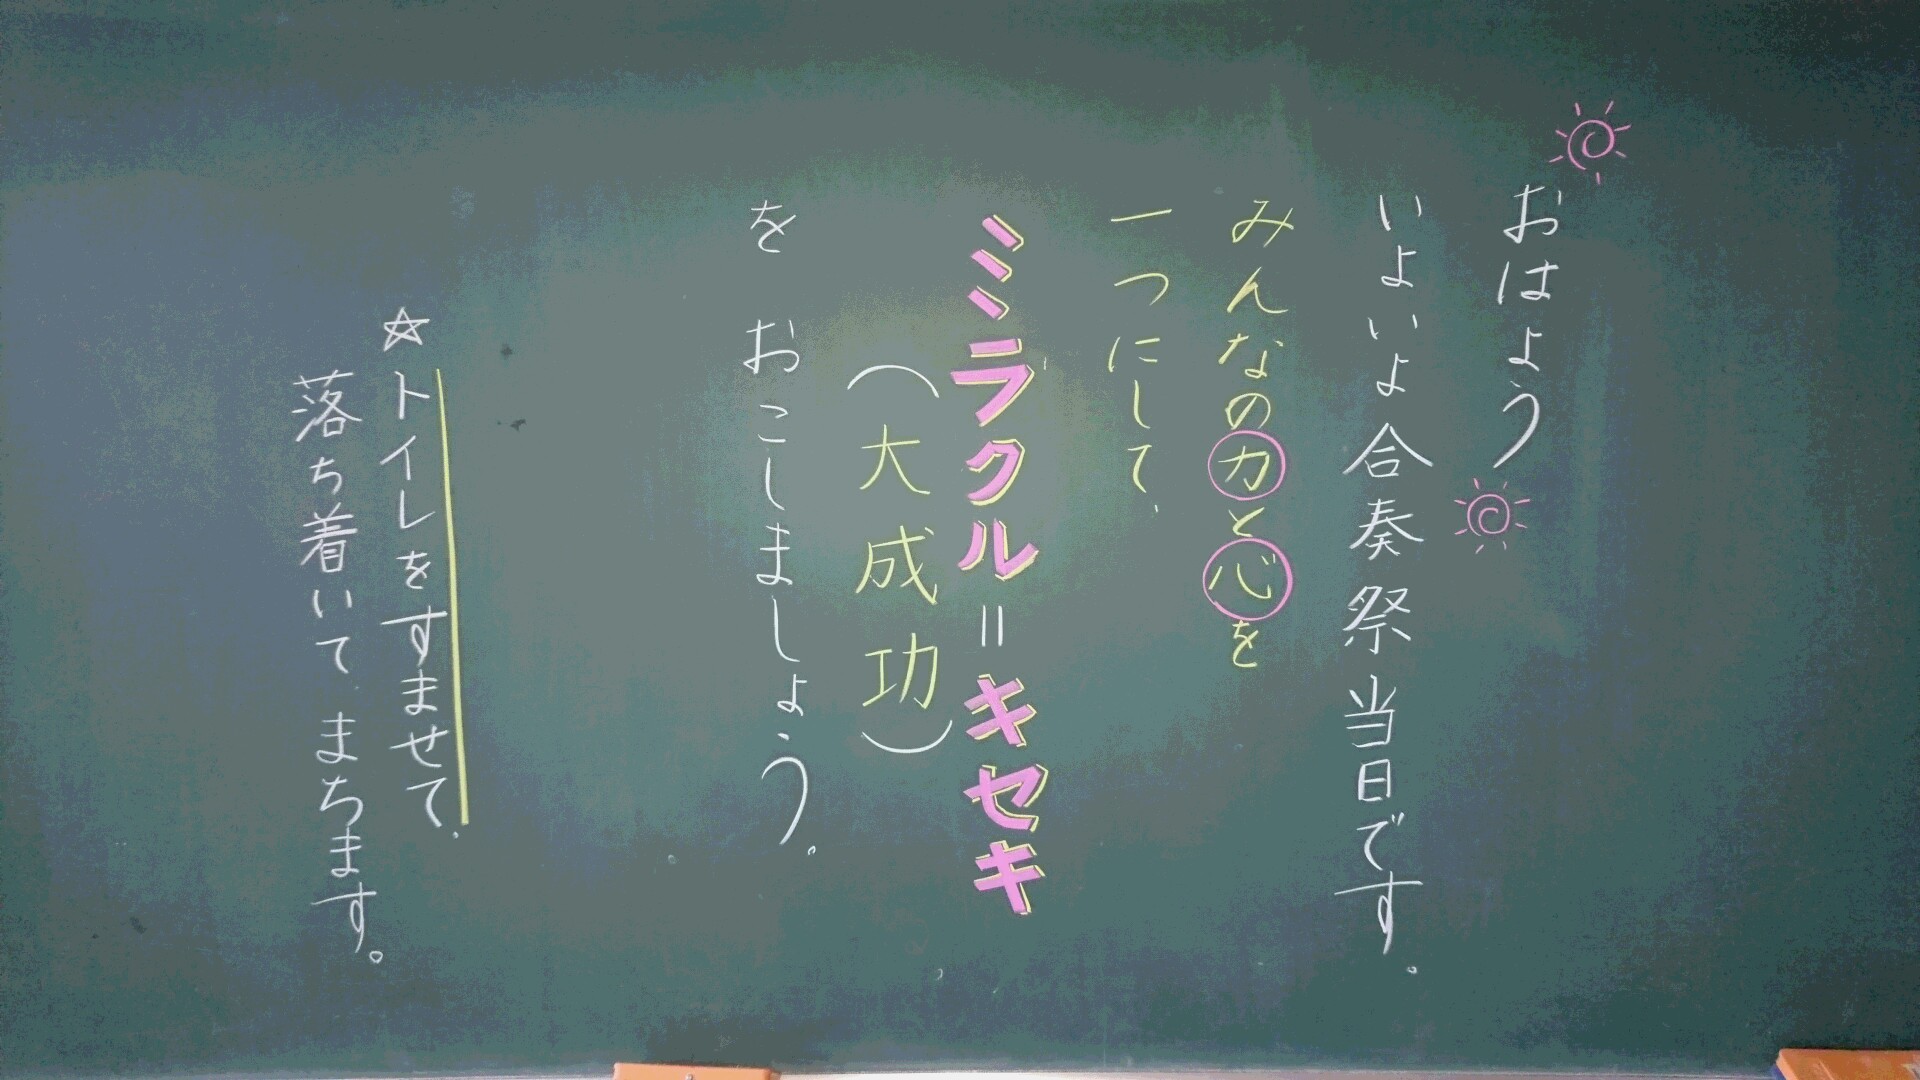 おはよう
いよいよ合奏祭当日です。
みんなの力と心を
一つにして、
ミラクル=キセキ
(大成功)
を おこしましょう。
☆トイレをすませて、
落ち着いて、まちます。